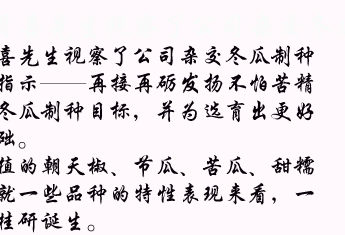 喜先生视察了公司杂交冬瓜制种
指示——再接再砺发扬不怕苦精
冬瓜制种目标，并为选育出更好
础。
植的朝天椒、节瓜、苦瓜、甜糯
就一些品种的特性表现来看，一
桂研诞生。